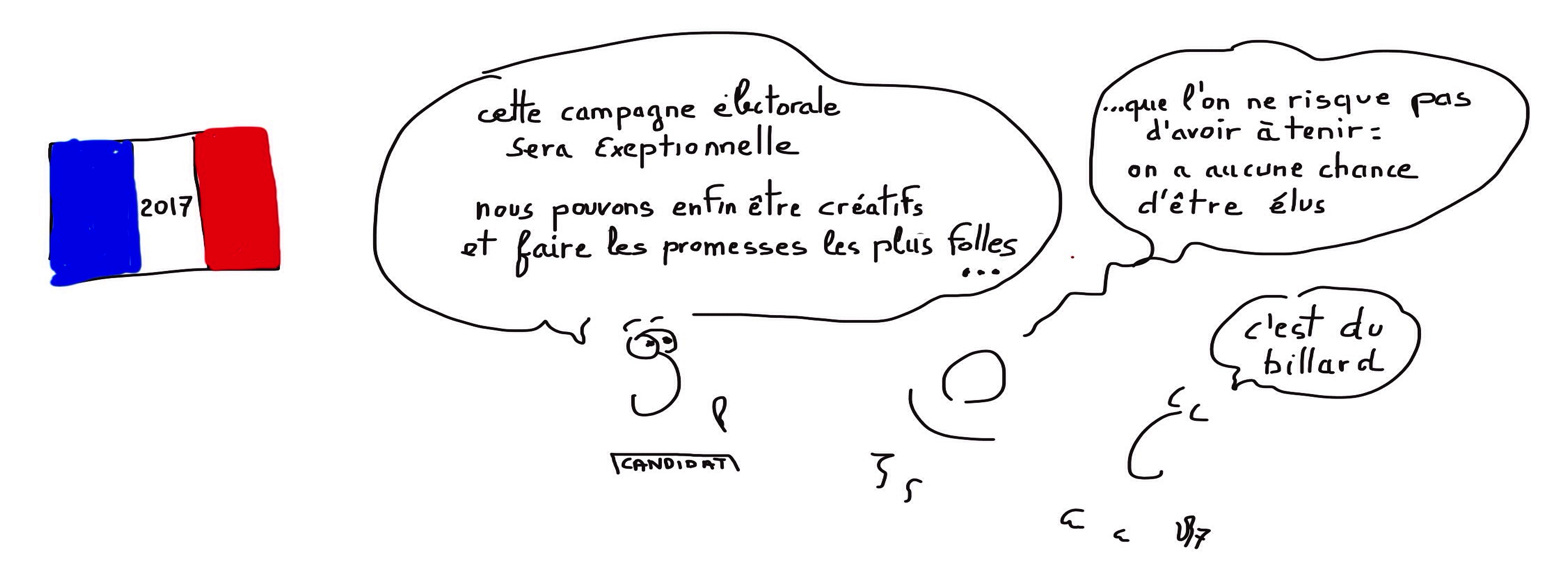 2017
cette campagne électorale
sera Exeptionnelle
nous pouvons enfin être créatifs
et faire les promesses les plus folles
...
...que l'on ne risque pas
d'avoir à tenir :
on a aucune chance
d'être élus
c'est du
billard
CANDIDAT